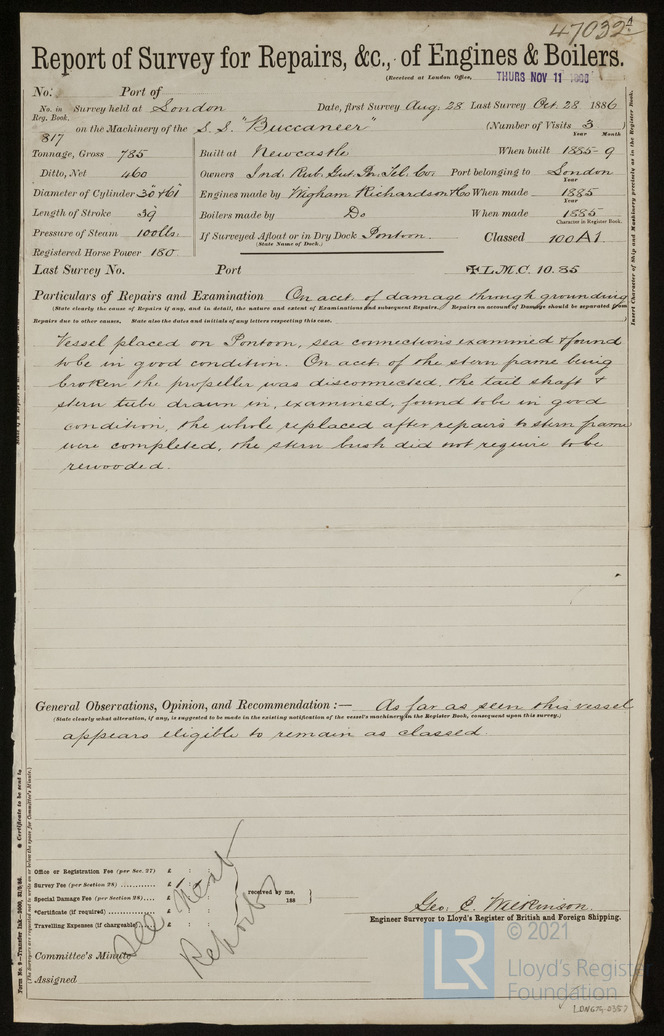 47032A
Report of Survey for Repairs, &c., of Engines & Boilers.
(Received at London Office, THURS NOV 11 1886
No. Port of
No. in Reg. Book. Survey held at London Date, first Survey Aug. 28 Last Survey Oct. 28 1886
817 on the Machinery of the S.S. "Buccaneer" (Number of Visits 3)
Tonnage, Gross 785 Built at Newcastle When built 1885-9
Year Month
Ditto, Net 460 Owners Ind. Rub. Gut. Pr. Tel. Co. Port belonging to London
Diameter of Cylinder 30" & 61" Engines made by Wigham Richardson & Co When made 1885
Year
Length of Stroke 39 Boilers made by Do When made 1885
Year
Pressure of Steam 100lbs. If Surveyed Afloat or in Dry Dock Pontoon. Classed 100A1
(State Name of Dock.) Character in Register Book.
Registered Horse Power 180
Last Survey No. Port ✠L.M.C. 10.85
Particulars of Repairs and Examination On acct. of damage through grounding
(State clearly the cause of Repairs if any, and in detail, the nature and extent of Examinations and subsequent Repairs. Repairs on account of Damage should be separated from
Repairs due to other causes. State also the dates and initials of any letters respecting this case.
Vessel placed on Pontoon, sea connections examined & found
to be in good condition. On acct. of the stern frame being
broken the propeller was disconnected, the tail shaft &
stern tube drawn in, examined, found to be in good
condition, the whole replaced after repairs to stern frame
were completed, the stern bush did not require to be
rewooded.
General Observations, Opinion, and Recommendation :— As far as seen this vessel
(State clearly what alteration, if any, is suggested to be made in the existing notification of the vessel's machinery in the Register Book, consequent upon this survey.)
appears eligible to remain as classed.
Office or Registration Fee (per Sec. 27) £ : :
Survey Fee (per Section 28) £ : :
Special Damage Fee (per Section 28) £ : :
*Certificate (if required) £ : :
Travelling Expenses (if chargeable) £ : :
received by me,
188
See Next
Reports
Geo. E. Wilkinson.
Engineer Surveyor to Lloyd's Register of British and Foreign Shipping.
Committee's Minute
Assigned
Insert Character of Ship and Machinery precisely as in the Register Book.
Form No. 9—Transfer Ink
* Certificate to be sent to
(The Surveyors are requested not to write on or below the space for Committee's Minute.)
© 2021
LR
Lloyd's Register
Foundation